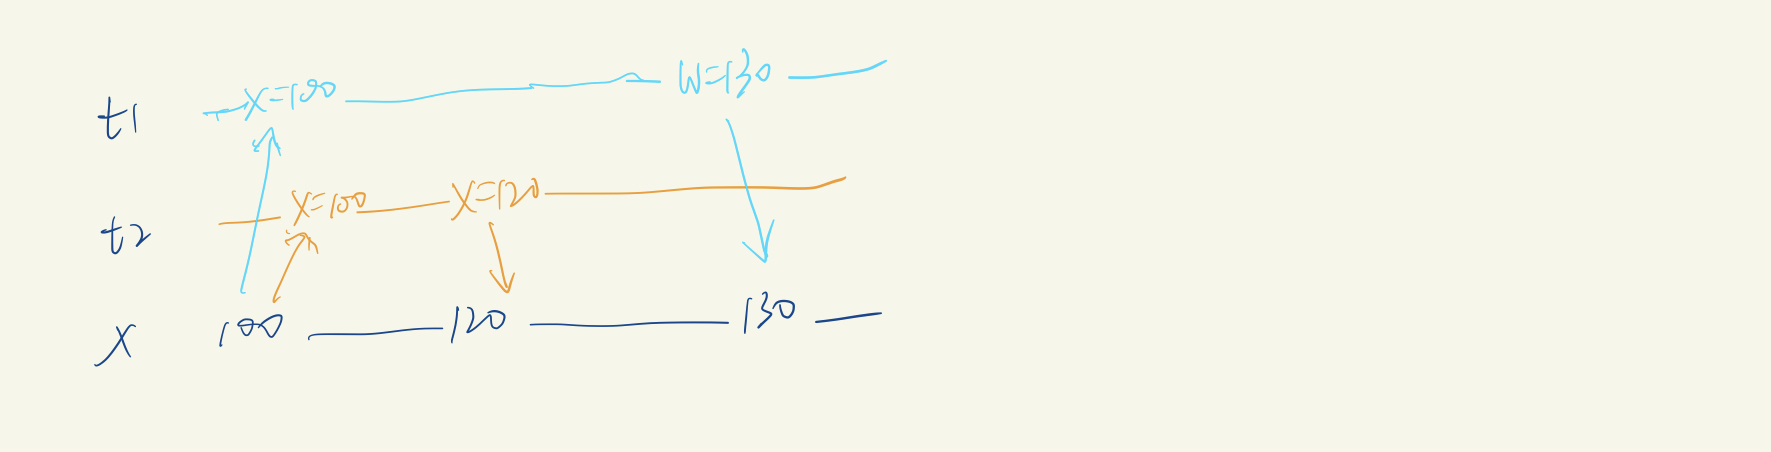 t1 X=100 W=130
t2 X=100 X=120
X 100 120 130